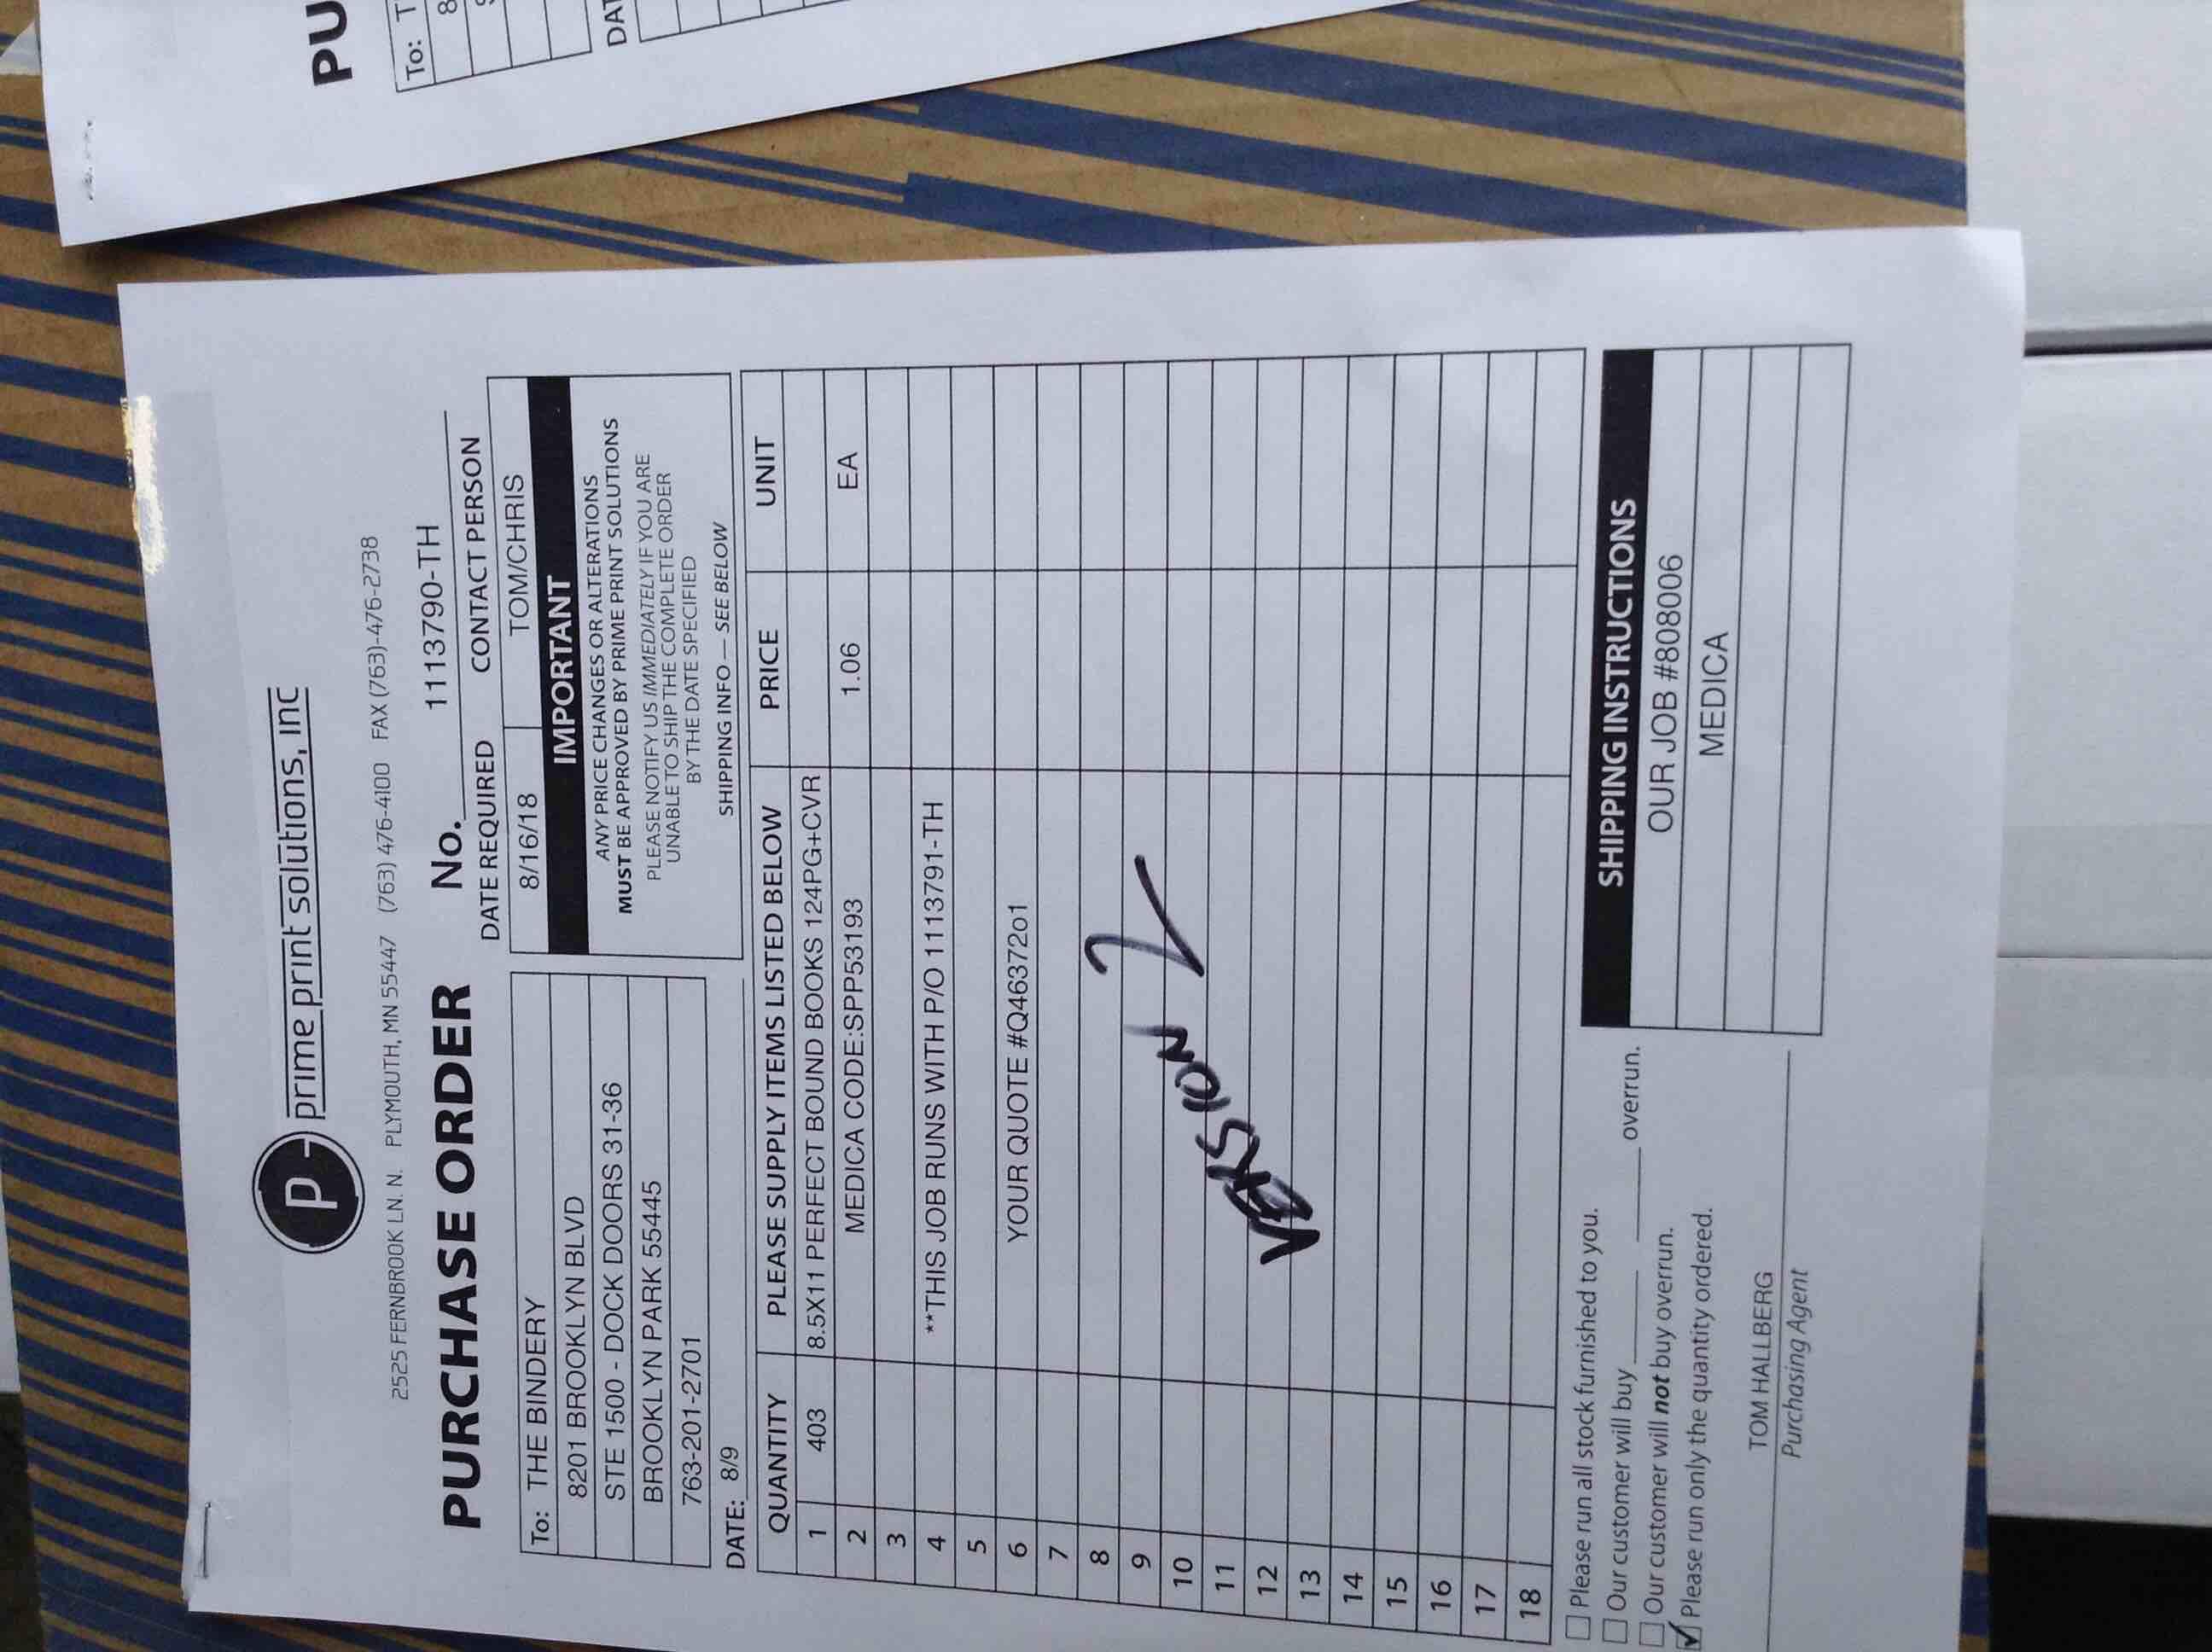 PU
To: T
8
DAT
P
prime print solutions, inc
2525 FERNBROOK LN. N. PLYMOUTH, MN 55447 (763) 476-4100 FAX (763)-476-2738
PURCHASE ORDER No. 1113790-TH
DATE REQUIRED CONTACT PERSON
8/16/18 TOM/CHRIS
To: THE BINDERY
8201 BROOKLYN BLVD
STE 1500 - DOCK DOORS 31-36
BROOKLYN PARK 55445
763-201-2701
DATE: 8/9
IMPORTANT
ANY PRICE CHANGES OR ALTERATIONS
MUST BE APPROVED BY PRIME PRINT SOLUTIONS
PLEASE NOTIFY US IMMEDIATELY IF YOU ARE
UNABLE TO SHIP THE COMPLETE ORDER
BY THE DATE SPECIFIED
SHIPPING INFO — SEE BELOW
QUANTITY PLEASE SUPPLY ITEMS LISTED BELOW PRICE UNIT
1 403 8.5X11 PERFECT BOUND BOOKS 124PG+CVR
2 MEDICA CODE:SPP53193 1.06 EA
3
4 **THIS JOB RUNS WITH P/O 1113791-TH
5
6 YOUR QUOTE #Q46372o1
7
8
9
10
11
12
13
14
15
16
17
18
VERSION 2
Please run all stock furnished to you.
Our customer will buy ______ ______ overrun.
Our customer will not buy overrun.
✓ Please run only the quantity ordered.
TOM HALLBERG
Purchasing Agent
SHIPPING INSTRUCTIONS
OUR JOB #808006
MEDICA